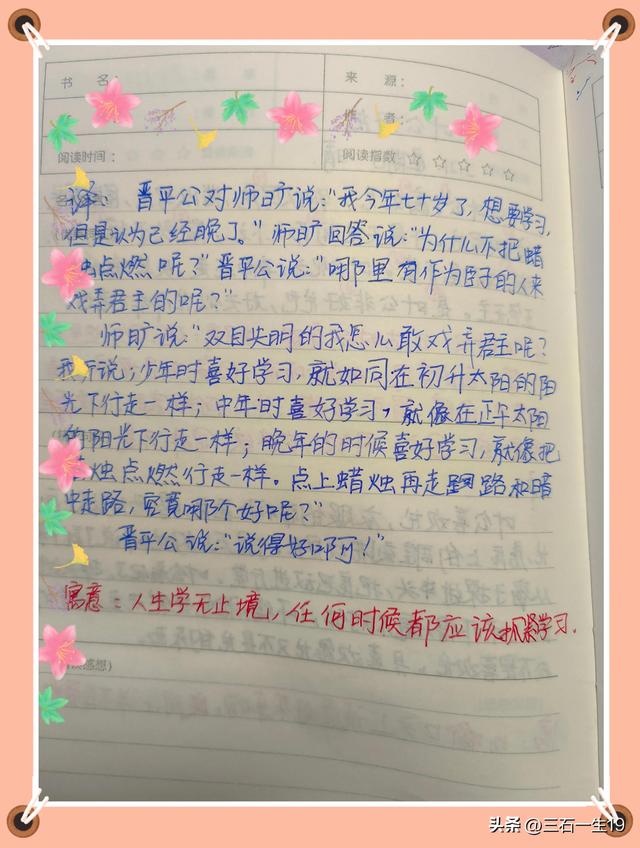 书 名：
来 源：
作 者：
阅读时间：
阅读指数 ☆ ☆ ☆ ☆ ☆
译： 晋平公对师旷说：“我今年七十岁了，想要学习，
但是认为已经晚了。”师旷回答说：“为什么不把蜡
烛点燃呢？”晋平公说：“哪里有作为臣子的人来
戏弄君主的呢？”
师旷说：“双目失明的我怎么敢戏弄君主呢？
我听说；少年时喜好学习，就如同在初升太阳的阳
光下行走一样；中年时喜好学习，就像在正午太阳
的阳光下行走一样；晚年的时候喜好学习，就像把
蜡烛点燃行走一样。点上蜡烛再走路和暗
中走路，究竟哪个好呢？”
晋平公说：“说得好啊！”
寓意：人生学无止境，任何时候都应该抓紧学习.
感想）
头条 @三石一生19